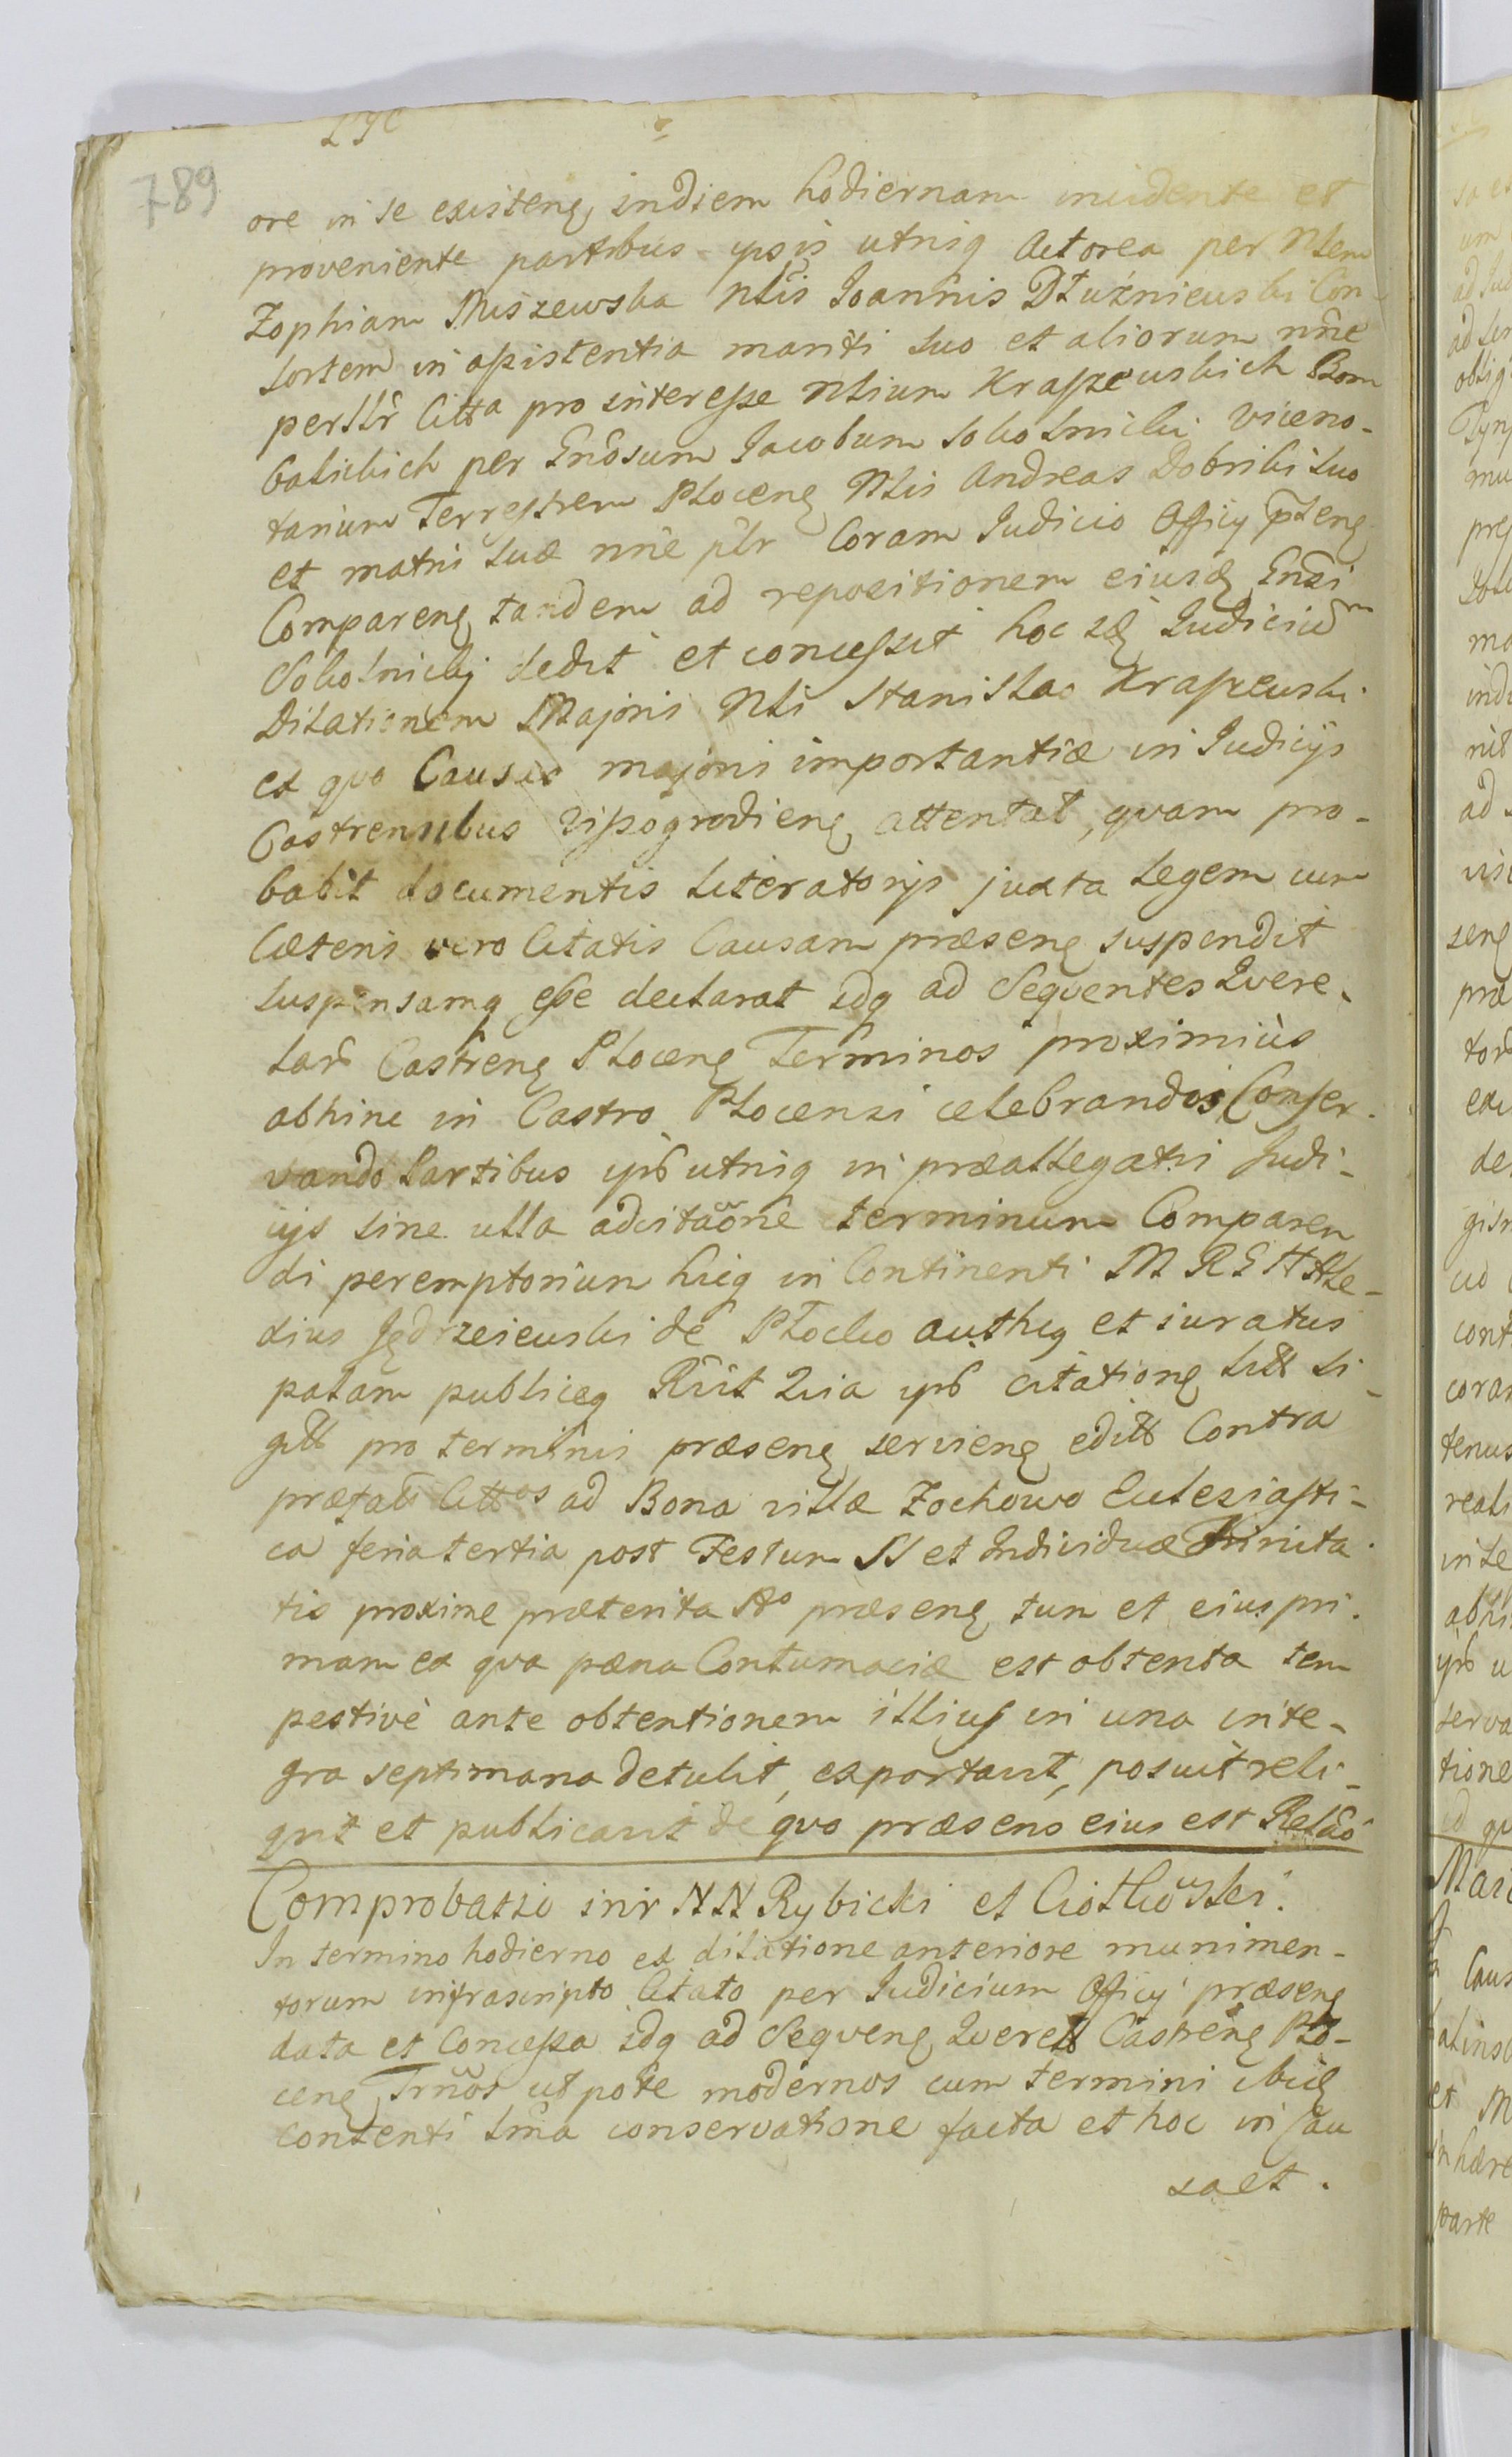 789
ore in se existeng indiem hodiernam incidente et
proveniente partibus ipsis utriq Actorea per Nlem
Zophiam Miszewska Nlis Joannis Dłużnieuski Con
sortem in assistentia mariti suo et aliorum nne
persllr Citta pro interesse Nlium Kraszeuskich Bom
balickich per Gnosum Jacobum Sokolnicki Viceno-
tarium Terrestrem Ploceng Nlis Andreas Dobrski suo
et matris suæ nne plr Coram Judicio Officy pteng
Compareng tandem ad repositionem eiusd Gnsi
Sokolnicky dedit et concessit hoc id Judiciũm
Dilationem Majoris Nli Stanislao Kraszeuski
ex quo Causas majoris importantiæ in Judicijs
Castrensibus Vissogrodieng attentat, quam pro-
babit documentis literatorijs juxta legem cum
Cæteris vero Citatis Causam præseng suspendit
suspensamq esse declarat idq ad Sequentes Quere-
lar Castreng Ploceng Terminos proximiùs
abhinc in Castro Plocensi celebrandos Conser-
vando Partibus ipb utriq in præallegatis Judi-
cijs sine ulla adcitaõne terminum Comparen
di peremptorium hicq in Continenti M R G H Ale-
dius Jędrzeieuski de Płocko authcq et iuratus
palam publiceq Rũit Quia ipb citationq litt Si-
gltt pro terminis præseng servieng editt Contra
præfatt Cittos ad Bona villæ Zochowo Eclesiasti-
ca feria tertia post Festum SS et Individuæ Trinita-
tis proxime præterita Ao præseng tum et eius pri-
mam ex qua pæna Contumaciæ est obtenta tem
pestivè ante obtentionem illius in una inte-
gra septimana detulit, exportavit, posuit reli-
qvit et publicavit de quo præsens eius est Relãò
Comprobatio inir NN Rybicki et Ciotkõski.
In termino hodierno ex dilatione anteriore munimen-
torum infrascripto Citato per Judicium Officy præseng
data et Concessa idq ad Seqveng Querell Castreng Plo-
ceng Trnõs utpote modernos cum termini ibid
contenti lma conservatione facta et hoc in Cau
sa et.